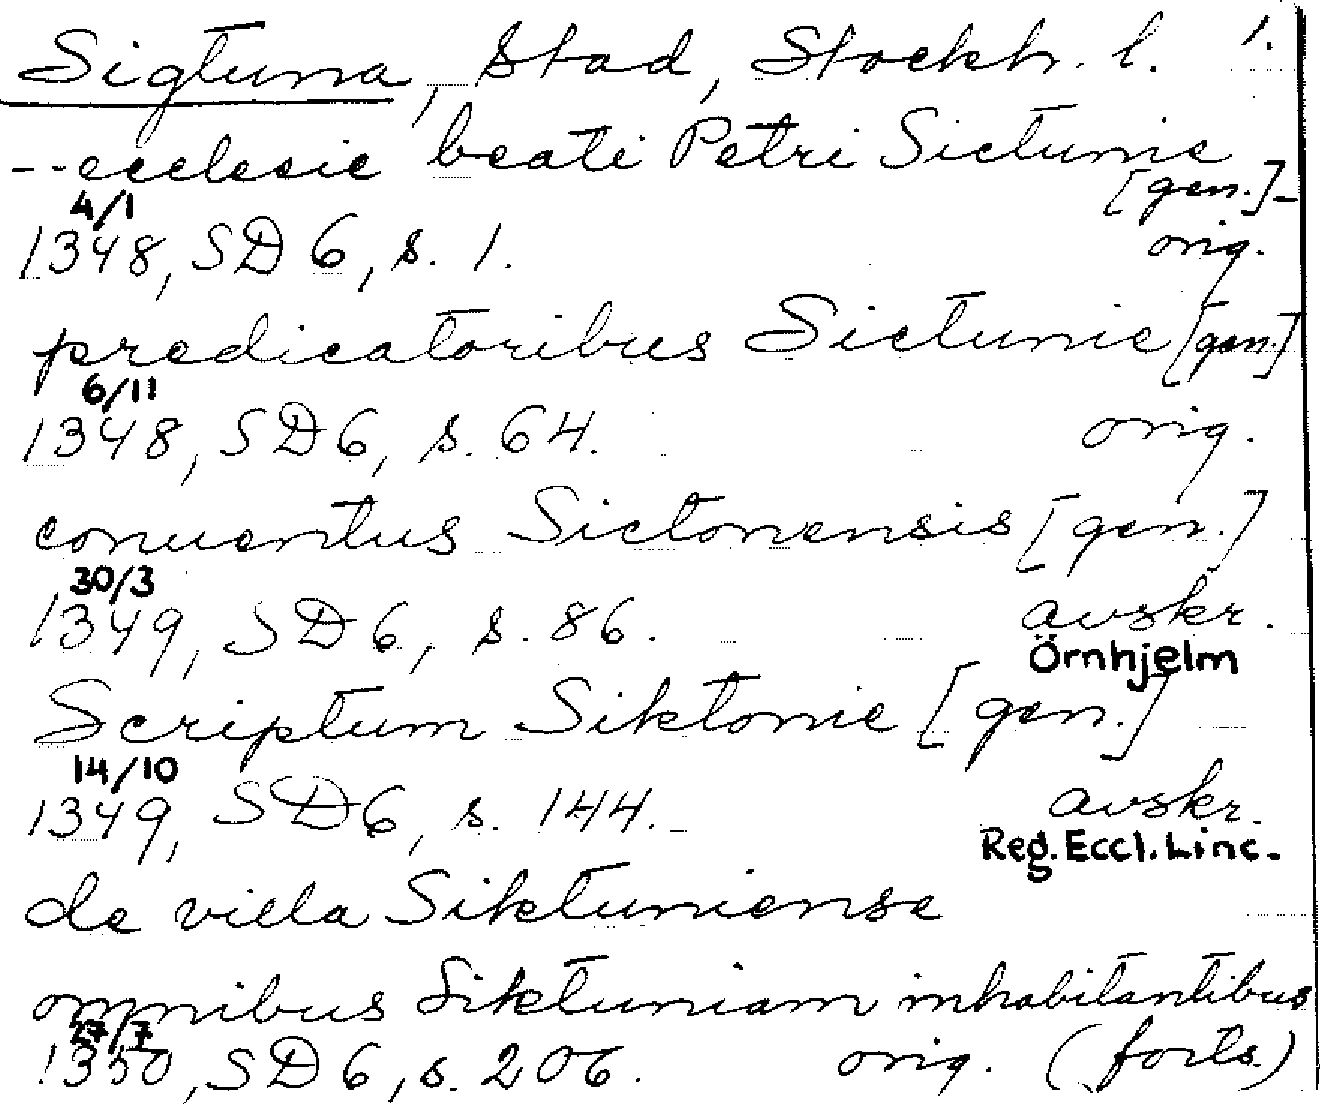 Sigtuna, Stad, Stockh. l. 1.
--ecclesie beati Petri Sictunie
[gen.]-
4/1
1348, SD 6, s. 1. orig.
predicatoribus Sictunie [gen.]
6/11
1348, SD 6, s. 64. orig.
conuentus Sictonensis [gen.]
30/3
1349, SD 6, s. 86. avskr.
Örnhjelm
Scriptum Siktonie [gen.]
14/10
1349, SD 6, s. 144. avskr.
Reg. Eccl. Linc.
de villa Siktuniense
omnibus Siktuniam inhabitantibus
27/7
1350, SD 6, s. 206. orig. (forts.)